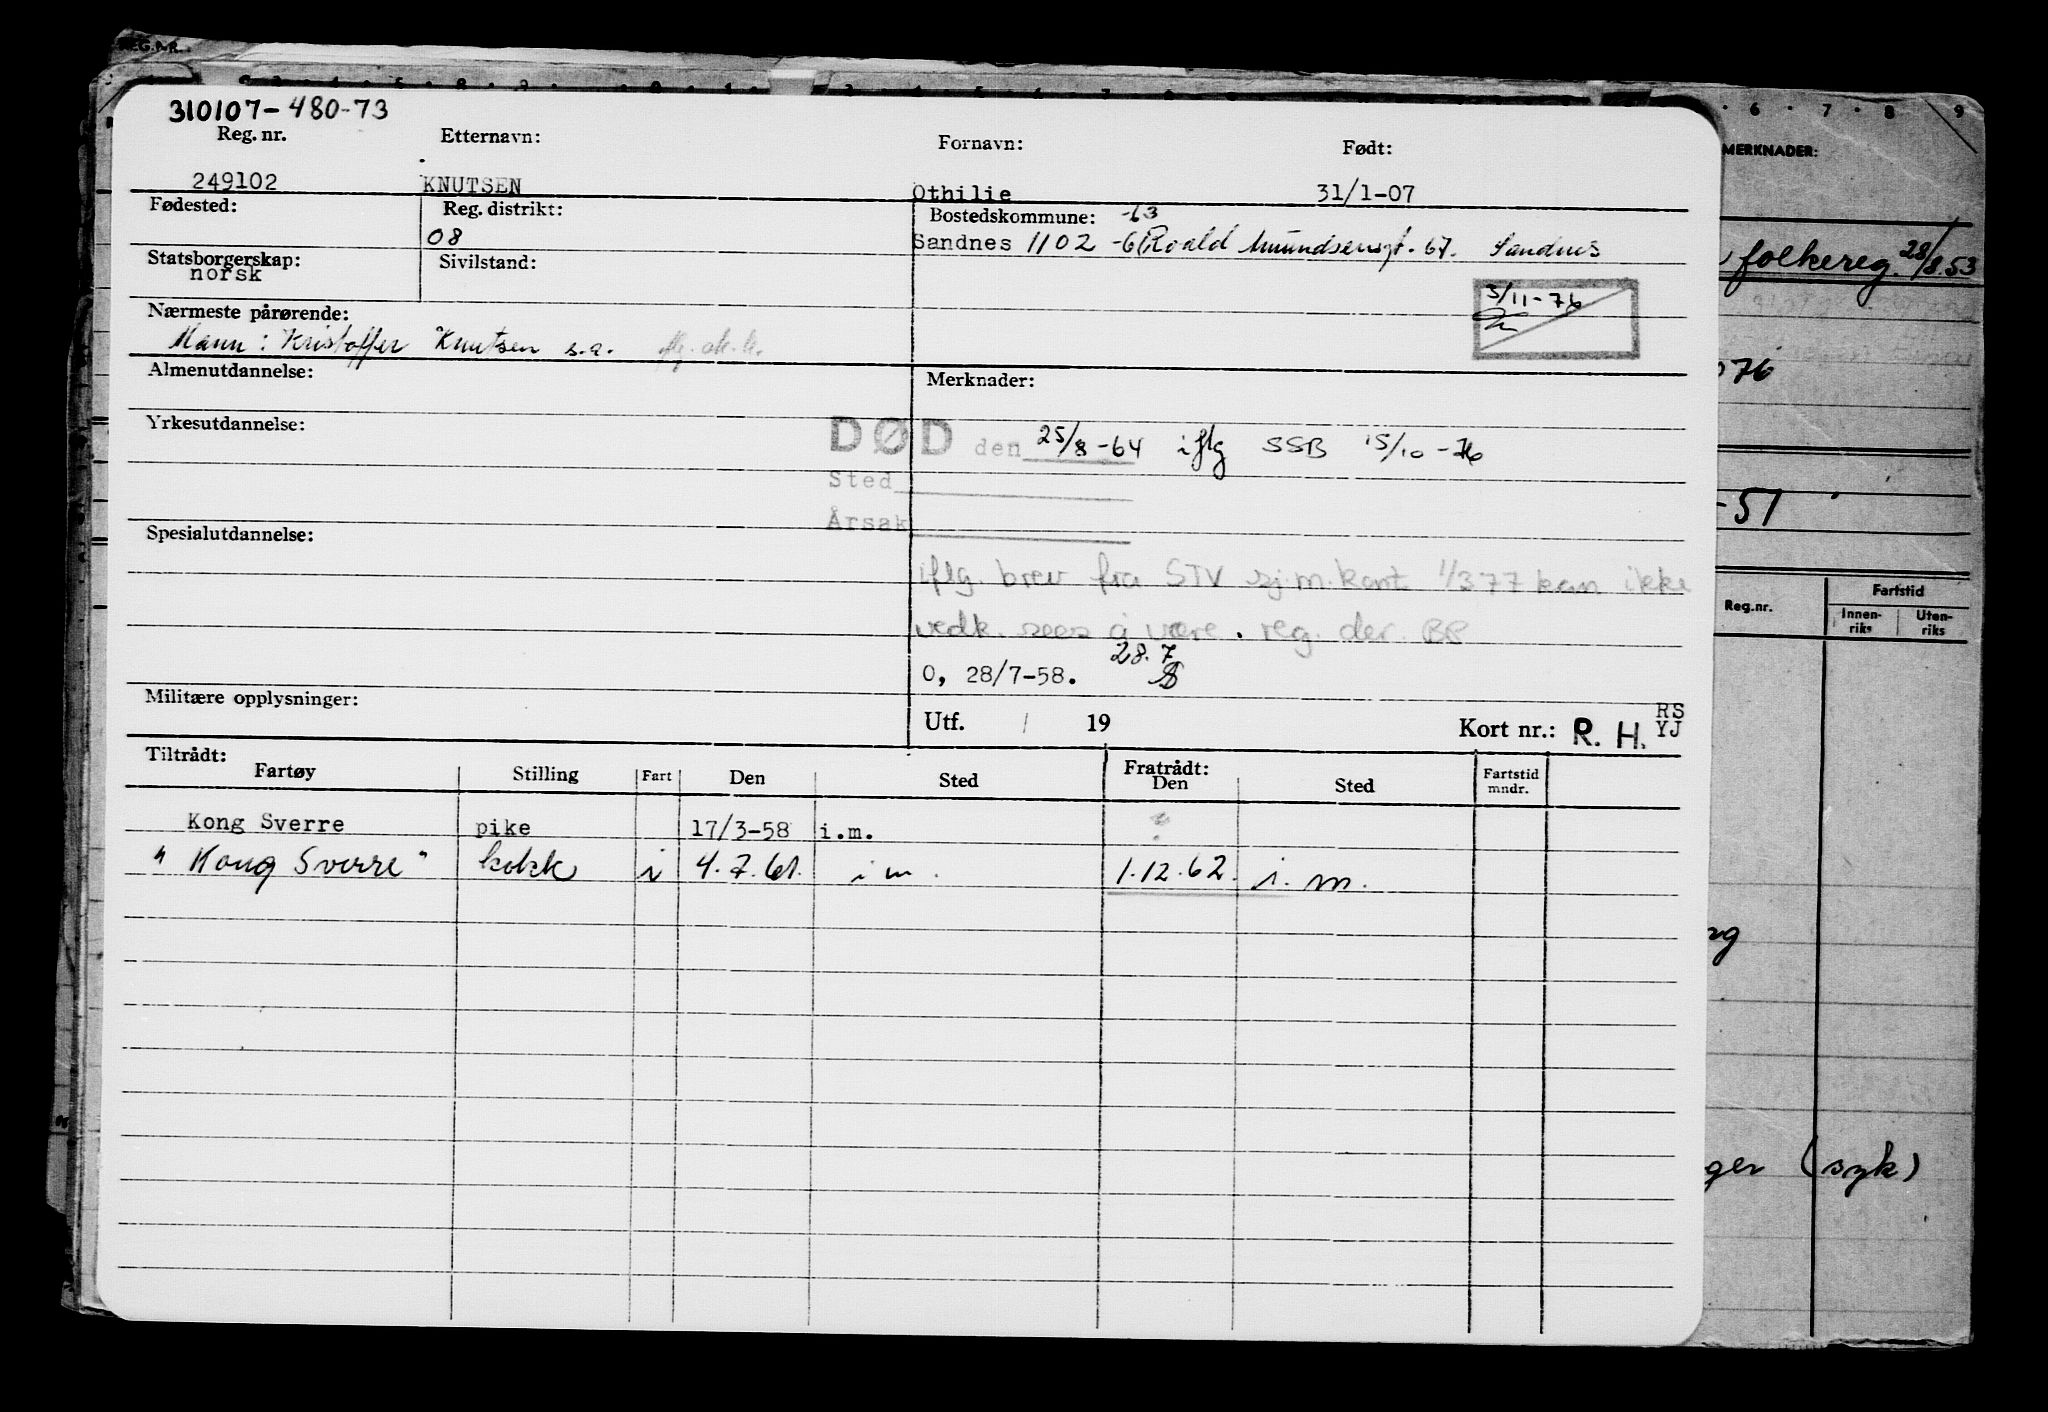 310107-480-73
Reg. nr. Etternavn: Fornavn: Født:
249102 KNUTSEN Othilie 31/1-07
Fødested: Reg. distrikt: Bostedskommune: -63
08 Sandnes 1102 Roald Amundsensgt. 67. Sandnes
Statsborgerskap: Sivilstand:
norsk
3/11-76
Nærmeste pårørende:
Mann: Kristoffer Knutsen s.a.
Almenutdannelse: Merknader:
Yrkesutdannelse:
DØD den 25/8-64 iflg SSB 15/10-76
Sted
Årsak
Spesialutdannelse:
iflg. brev fra STV sj.m.kont 1/377 kan ikke
vedk. sees å være. reg. der. BP
28.7
0, 28/7-58.
Militære opplysninger:
Utf. / 19 Kort nr.: R. H. RS
YJ
Tiltrådt: Fratrådt:
Fartøy Stilling Fart Den Sted Den Sted Fartstid
mndr.
Kong Sverre pike 17/3-58 i.m. ?
"Kong Sverre" kokk i 4.7.61. i m. 1.12.62. i. m.
REG.NR.
6 7 8 9
MERKNADER:
folkereg. 28/8.53
076
-51
Reg.nr. Fartstid
Innen-
riks Uten-
riks
ger (syk)